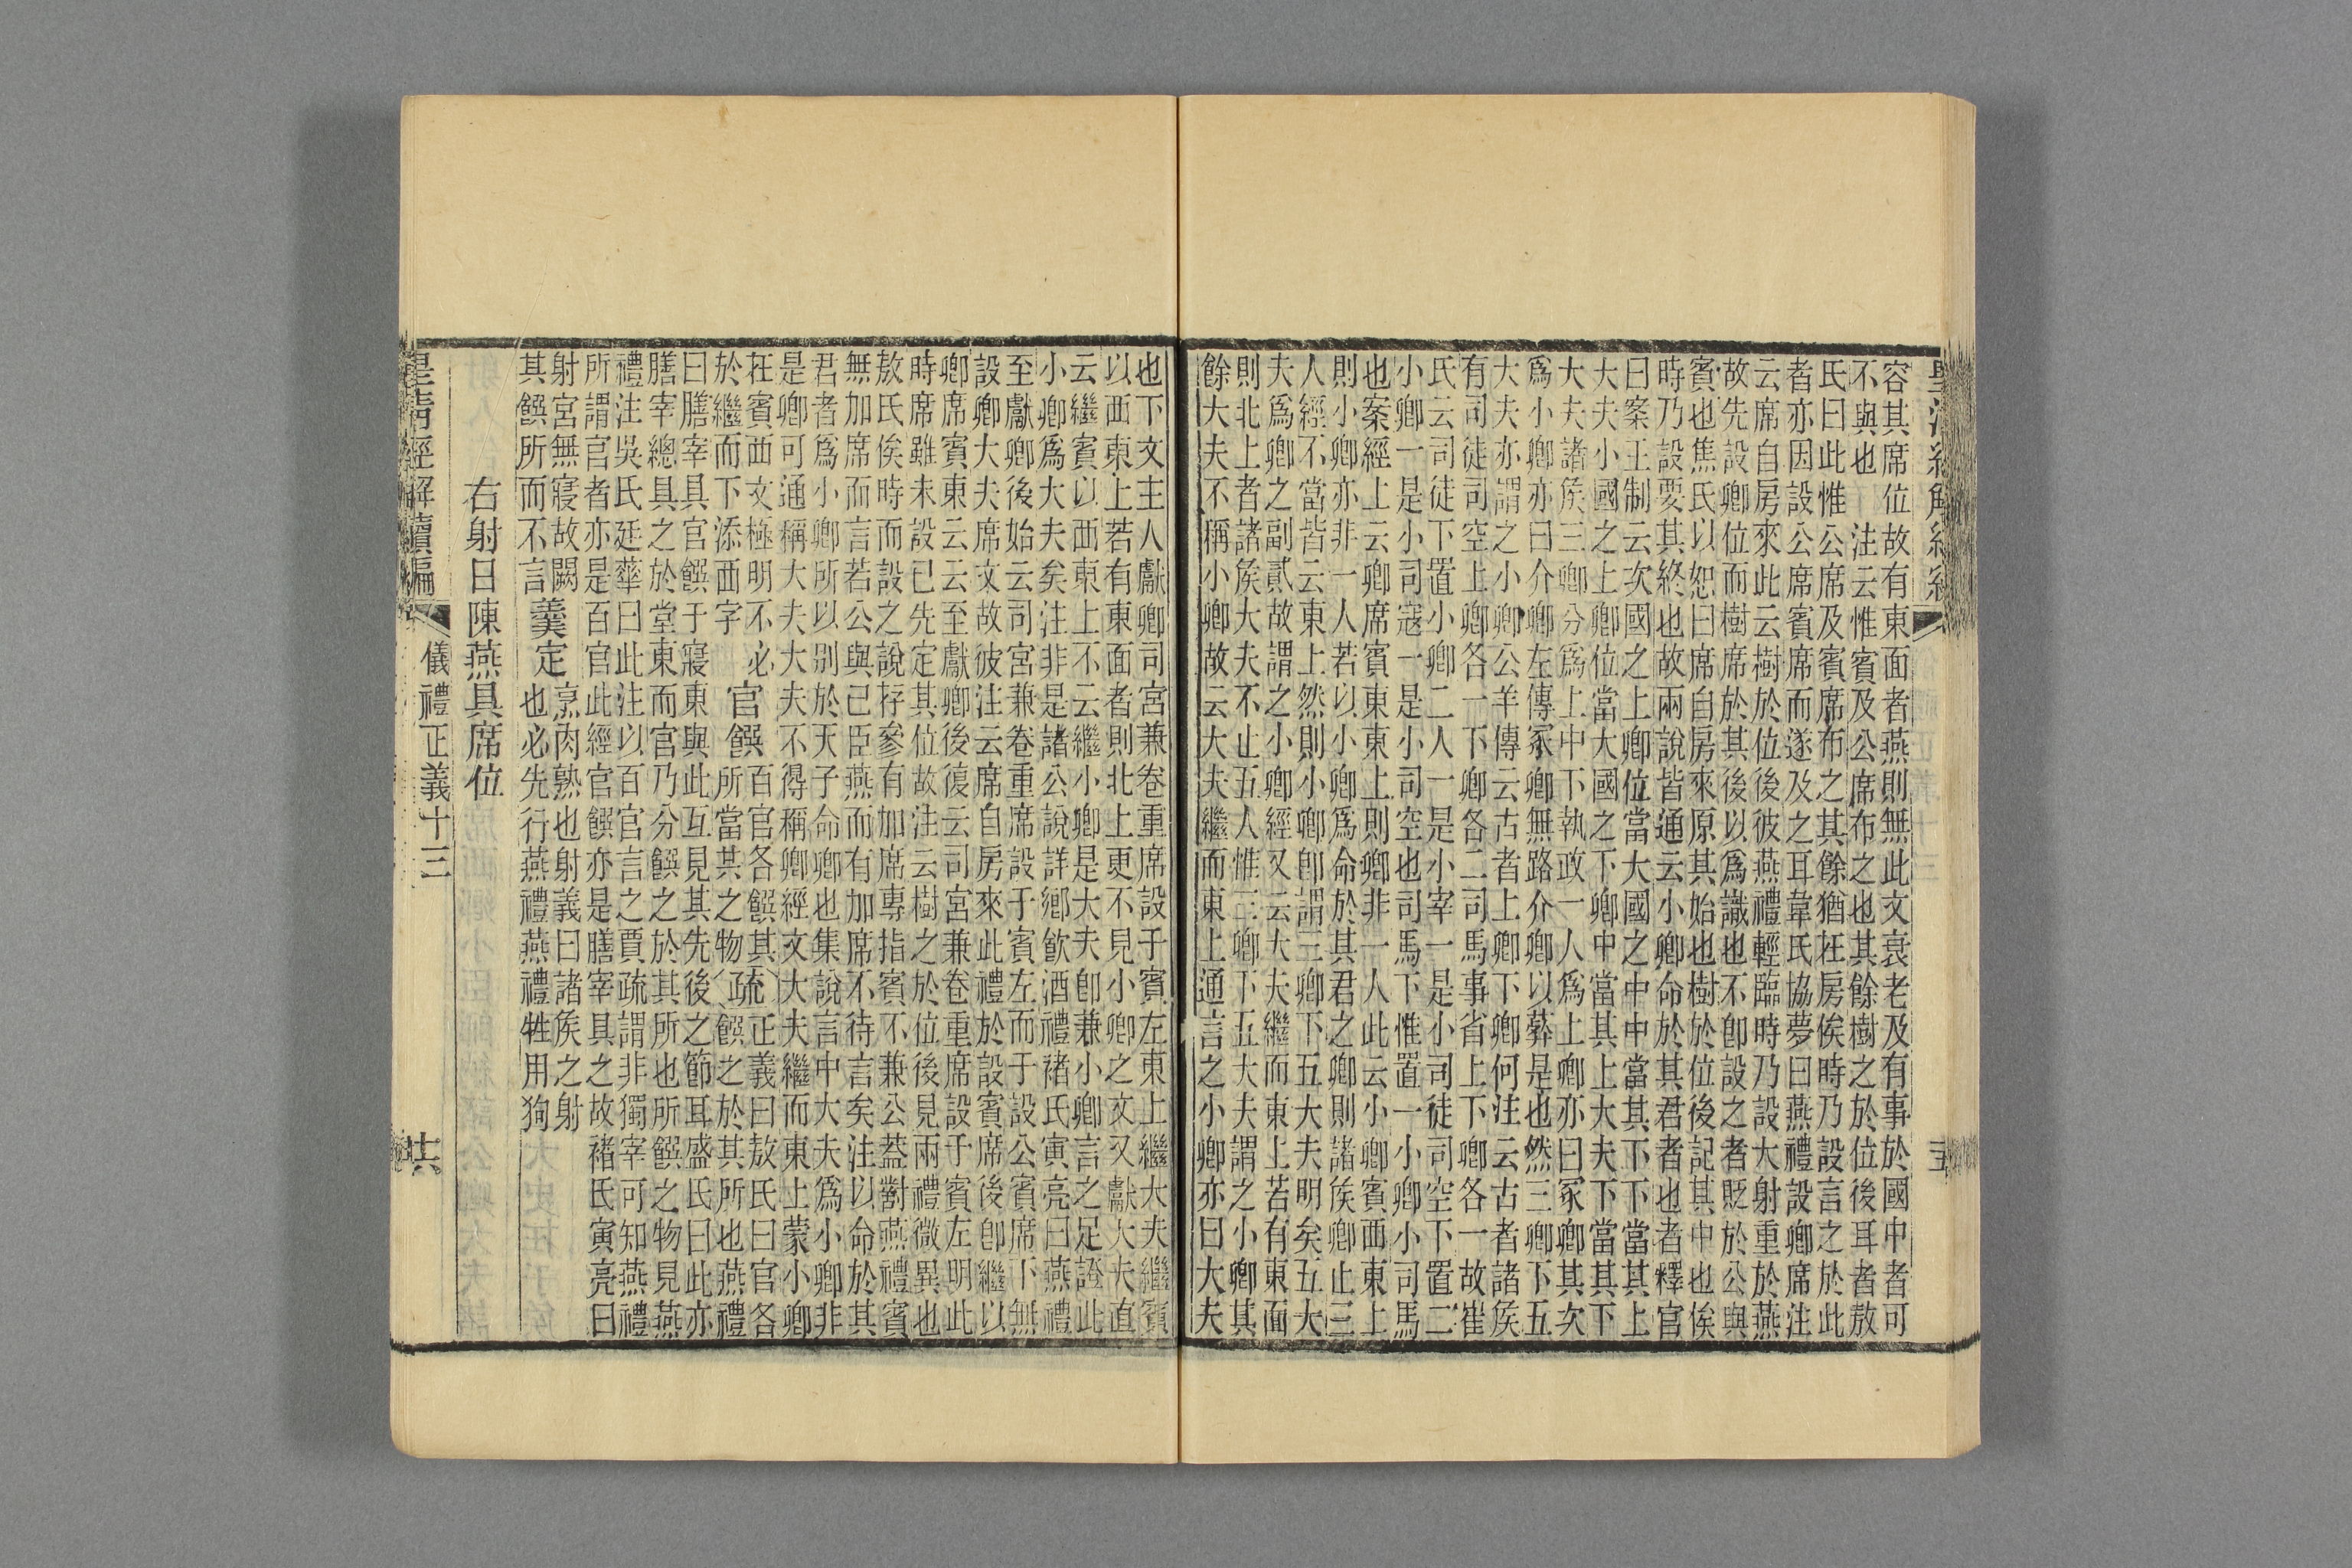 容其席位故有東面者燕則無此文衰老及有事於國中者可
不與也　注云惟賓及公席布之也其餘樹之於位後耳者敖
氏曰此惟公席及賓席布之其餘猶在房俟時乃設言之於此
者亦因設公席賓席而遂及之耳韋氏協夢曰燕禮設卿席注
云席自房來此云樹於位後彼燕禮輕臨時乃設大射重於燕
故先設卿位而樹席於其後以爲識也不卽設之者貶於公與
賓也焦氏以恕曰席自房來原其始也樹於位後記其中也俟
時乃設要其終也故兩說皆通云小卿命於其君者也者釋官
曰案王制云次國之上卿位當大國之中中當其下下當其上
大夫小國之上卿位當大國之下卿中當其上大夫下當其下
大夫諸矦三卿分爲上中下執政一人爲上卿亦曰冢卿其次
爲小卿亦曰介卿左傳冢卿無路介卿以葬是也然三卿下五
大夫亦謂之小卿公羊傳云古者上卿下卿何注云古者諸矦
有司徒司空上卿各一下卿各二司馬事省上下卿各一故崔
氏云司徒下置小卿二人一是小宰一是小司徒司空下置二
小卿一是小司寇一是小司空也司馬下惟置一小卿小司馬
也案經上云卿席賓東東上則卿非一人此云小卿賓西東上
則小卿亦非一人若以小卿爲命於其君之卿則諸矦卿止三
人經不當皆云東上然則小卿卽謂三卿下五大夫明矣五大
夫爲卿之副貳故謂之小卿經又云大夫繼而東上若有東面
則北上者諸矦大夫不止五人惟三卿下五大夫謂之小卿其
餘大夫不稱小卿故云大夫繼而東上通言之小卿亦曰大夫
也下文主人獻卿司宮兼卷重席設于賓左東上繼大夫繼賓
以西東上若有東面者則北上更不見小卿之文又獻大夫直
云繼賓以西東上不云繼小卿是大夫卽兼小卿言之足證此
小卿爲大夫矣注非是諸公說詳鄉飮酒禮褚氏寅亮曰燕禮
至獻卿後始云司宮兼卷重席設于賓左而于設公賓席下無
設卿大夫席文故彼注云席自房來此禮於設賓席後卽繼以
卿席賓東云云至獻卿後復云司宮兼卷重席設于賓左明此
時席雖未設已先定其位故注云樹之於位後見兩禮微異也
敖氏俟時而設之說存參有加席專指賓不兼公蓋對燕禮賓
無加席而言若公與己臣燕而有加席不待言矣注以命於其
君者爲小卿所以別於天子命卿也集說言中大夫爲小卿非
是卿可通稱大夫大夫不得稱卿經文大夫繼而東上蒙小卿
在賓西文極明不必
於繼而下添西字　官饌百官各饌其所當其之物疏正義曰敖氏曰官各饌之於其所也燕禮
曰膳宰具官饌于寢東與此互見其先後之節耳盛氏曰此亦
膳宰總具之於堂東而官乃分饌之於其所也所饌之物見燕
禮注吳氏廷華曰此注以百官言之賈疏謂非獨宰可知燕禮
所謂官者亦是百官此經官饌亦是膳宰具之故褚氏寅亮曰
射宮無寢故闕
其饌所而不言　羹定烹肉熟也射義曰諸矦之射也必先行燕禮燕禮牲用狗
右射日陳燕具席位
儀禮正義十三